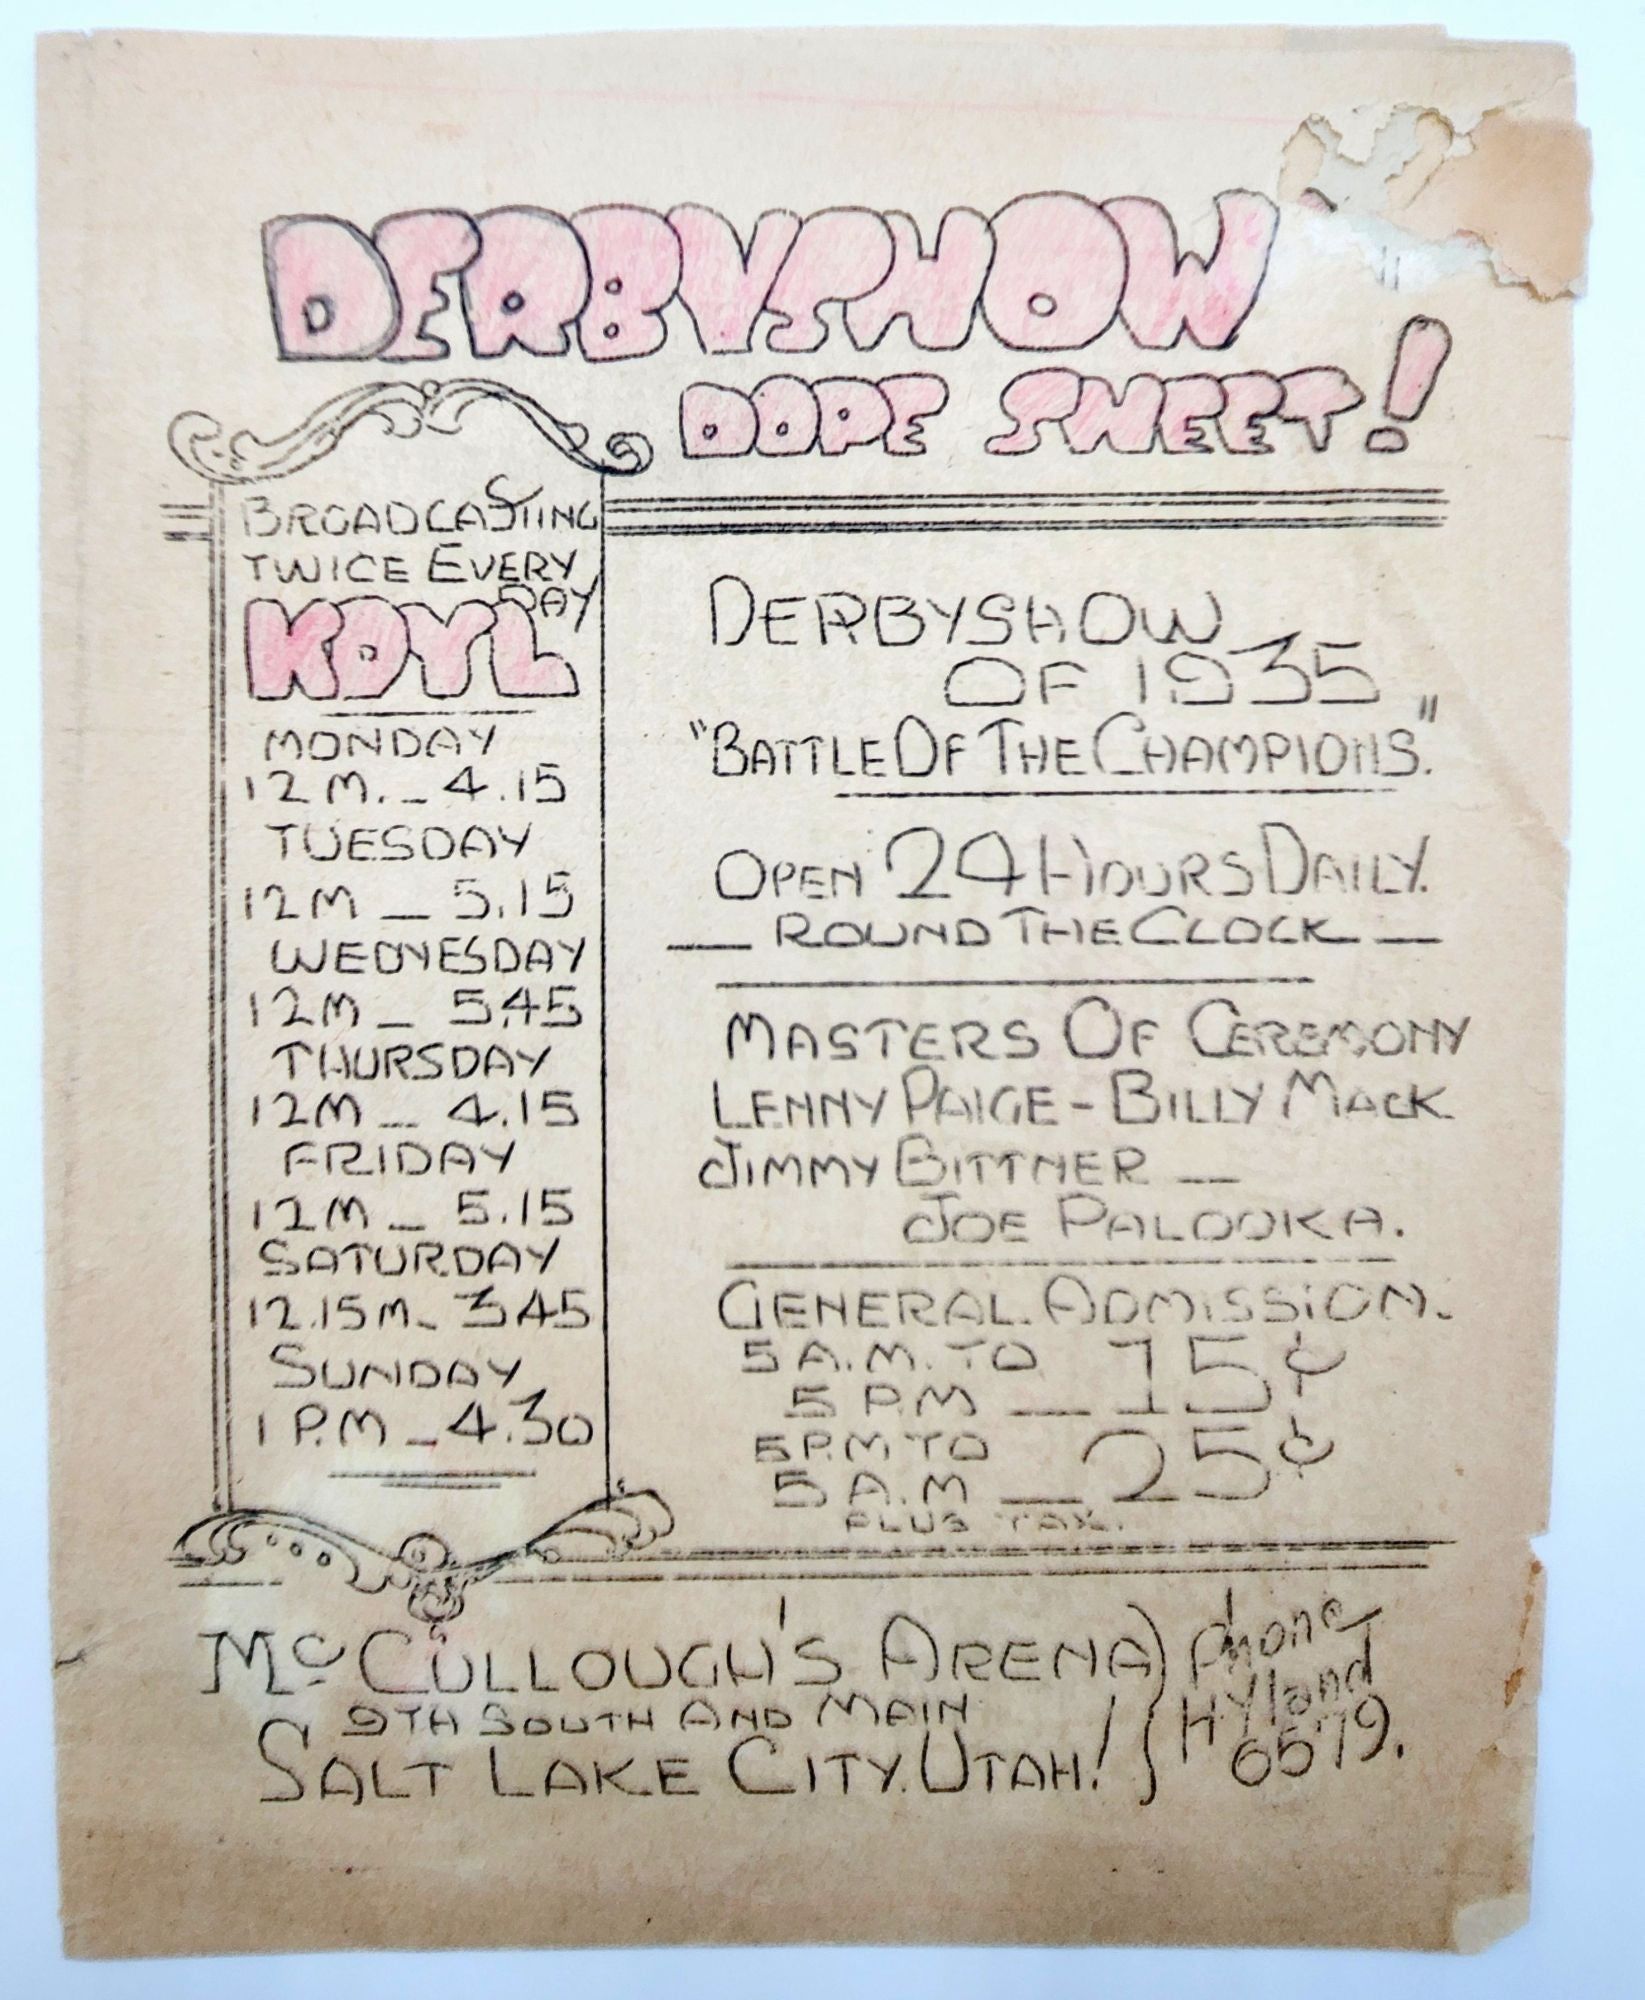 DERBYSHOW
DOPE SHEET!
BROADCASTING
TWICE EVERY
DAY
KDYL
MONDAY
12 M. _ 4.15
TUESDAY
12 M _ 5.15
WEDNESDAY
12 M _ 5.45
THURSDAY
12 M _ 4.15
FRIDAY
12 M _ 5.15
SATURDAY
12.15 M _ 3.45
SUNDAY
1 P.M _ 4.30
DERBYSHOW
OF 1935
"BATTLE OF THE CHAMPIONS."
OPEN 24 HOURS DAILY.
— ROUND THE CLOCK —
MASTERS OF CEREMONY
LENNY PAIGE - BILLY MACK
JIMMY BITTNER —
JOE PALOOKA.
GENERAL. ADMISSION.
5 A.M. TO
5 P.M — 15¢
5 P.M TO
5 A.M — 25¢
PLUS TAX.
McCULLOUGH'S ARENA
9TH SOUTH AND MAIN
SALT LAKE CITY. UTAH!
Phone
Hyland
6579.